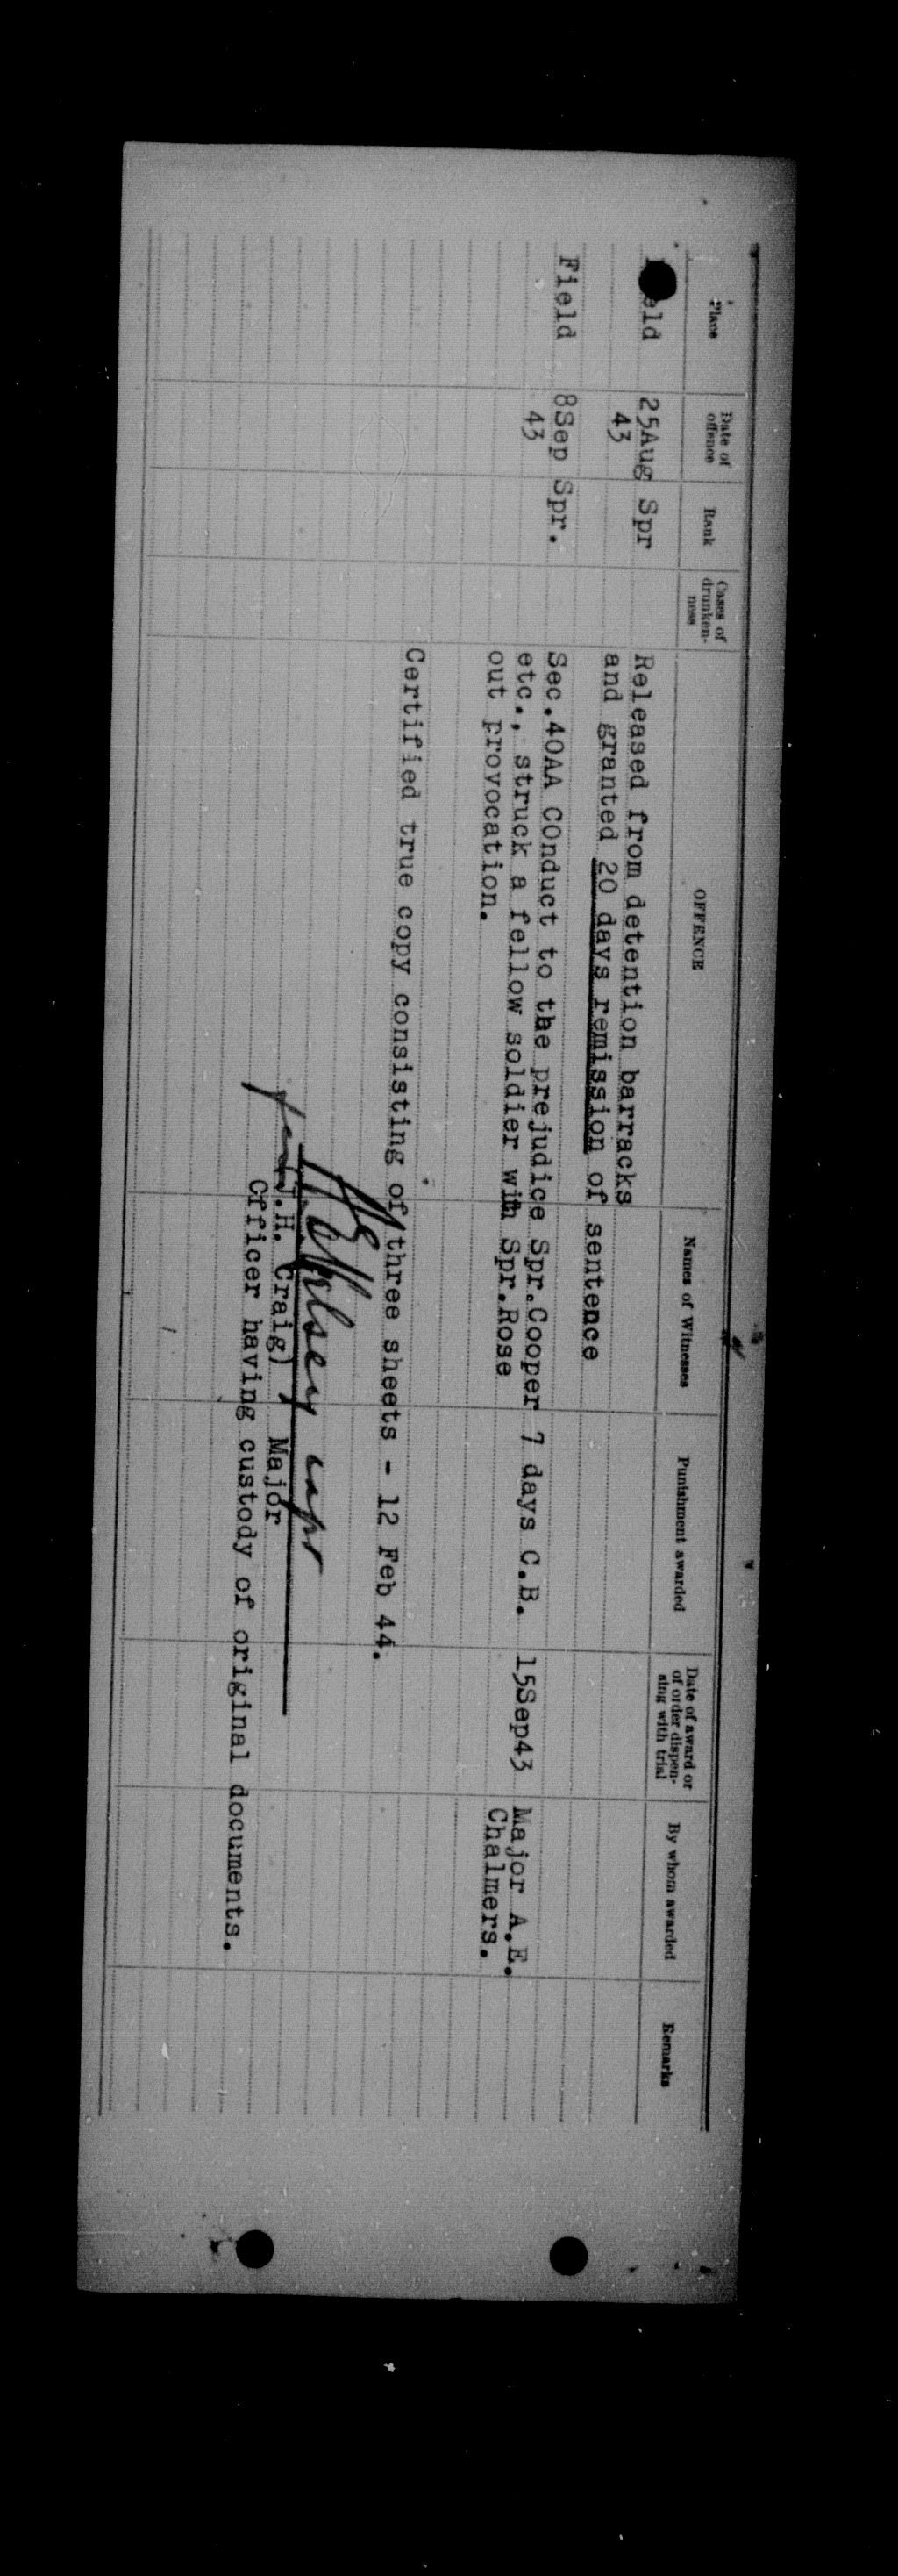 Place Date of offence Rank Cases of drunken-ness OFFENCE Names of Witnesses Punishment awarded Date of award or of order dispen-sing with trial By whom awarded Remarks
eld 25Aug Spr Released from detention barracks
43 and granted 20 days remission of sentence
Field 8Sep Spr. Sec.40AA COnduct to the prejudice Spr.Cooper 7 days C.B. 15Sep43 Major A.E.
43 etc., struck a fellow soldier with Spr.Rose Chalmers.
out provocation.
Certified true copy consisting of three sheets - 12 Feb 44.
capt
for J.H. Craig) Major
Officer having custody of original documents.